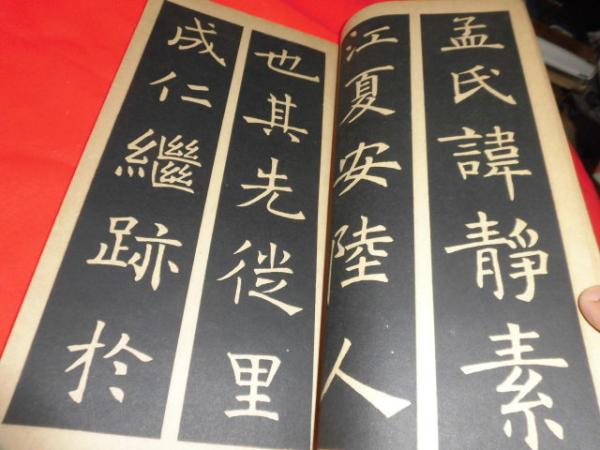 孟氏諱靜素
江夏安陸人
也其先徙里
成仁繼跡於